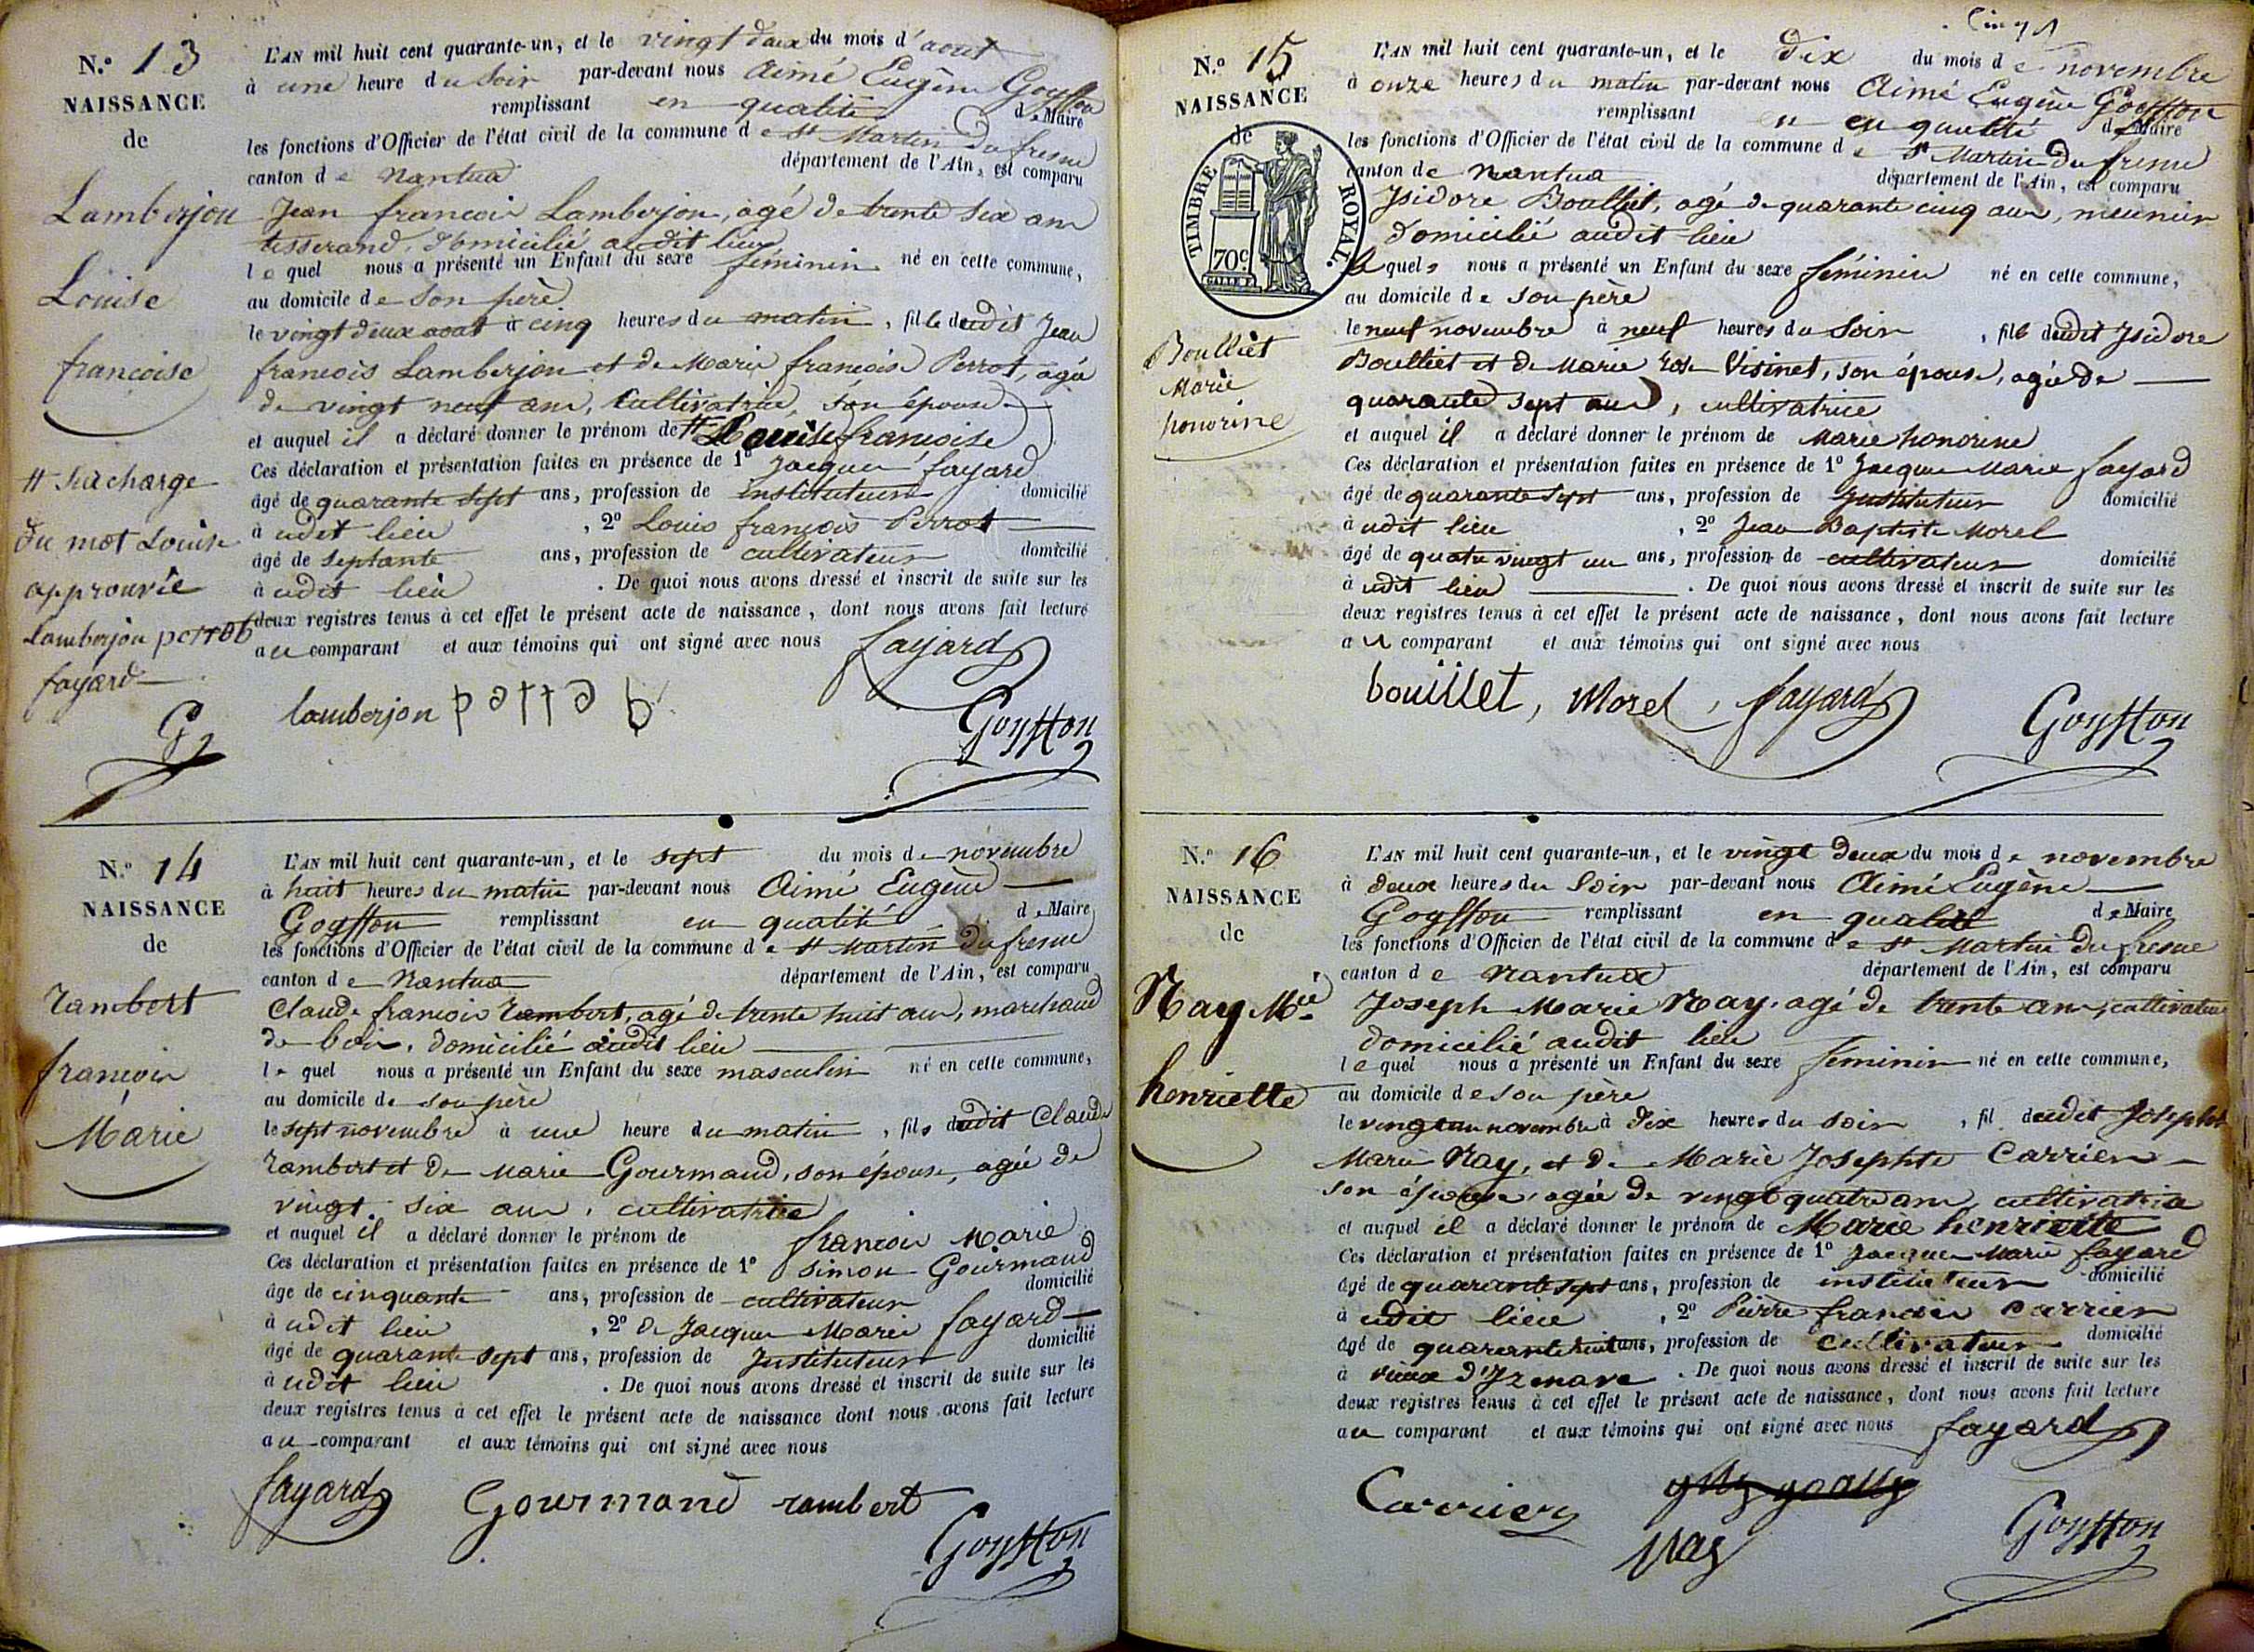 N.º 13
NAISSANCE
de
Lamberjon
Louise
francoise
# Surcharge
du mot Louise
approuvée
Lamberjon perrot
fayard
G
L'AN mil huit cent quarante-un, et le vingt deux du mois d'aout
à une heure du Soir par-devant nous Aimé Eugène Goyffon
remplissant en qualité de Maire
les fonctions d'Officier de l'état civil de la commune de St Martin Du fresne
canton de Nantua département de l'Ain, est comparu
Jean francois Lamberjon, agé de trente six ans
tisserand, domicilié audit lieu
lequel nous a présenté un Enfant du sexe féminin né en cette commune,
au domicile de Son père
le vingt deux aout à cinq heures du matin, fille dudit Jean
francois Lamberjon et de Marie francoise Perrot, agée
de vingt neuf ans, Cultivatrice, son épouse
et auquel il a déclaré donner le prénom de # Louise francoise
Ces déclaration et présentation faites en présence de 1º Jacques fayard
âgé de quarante sept ans, profession de instituteur domicilié
à udit lieu, 2º Louis francois Perrot
âgé de septante ans, profession de cultivateur domicilié
à udit lieu. De quoi nous avons dressé et inscrit de suite sur les
deux registres tenus à cet effet le présent acte de naissance, dont nous avons fait lecture
au comparant et aux témoins qui ont signé avec nous fayard
lamberjon perrot
Goyffon
N.º 14
NAISSANCE
de
rambert
francois
Marie
L'AN mil huit cent quarante-un, et le sept du mois de novembre
à huit heures du matin par-devant nous Aimé Eugène
Goyffon remplissant en qualité de Maire
les fonctions d'Officier de l'état civil de la commune de St Martin du fresne
canton de Nantua département de l'Ain, est comparu
Claude francois rambert, agé de trente huit ans, marchand
de bois, domicilié audit lieu
lequel nous a présenté un Enfant du sexe masculin né en cette commune,
au domicile de son père
le sept novembre à une heure du matin, fils dudit Claude
rambert et de Marie Gourmand, son épouse, agée de
vingt six ans, cultivatrice
et auquel il a déclaré donner le prénom de francois Marie
Ces déclaration et présentation faites en présence de 1º Simon Gourmand
âgé de cinquante ans, profession de cultivateur domicilié
à udit lieu, 2º Jacques Marie fayard
âgé de quarante sept ans, profession de Instituteur domicilié
à udit lieu. De quoi nous avons dressé et inscrit de suite sur les
deux registres tenus à cet effet le présent acte de naissance dont nous avons fait lecture
au comparant et aux témoins qui ont signé avec nous
fayard Gourmand rambert
Goyffon
Cinq
N.º 15
NAISSANCE
de
TIMBRE ROYAL.
70c
GALLE F.
Boulliet
Marie
honorine
L'AN mil huit cent quarante-un, et le Dix du mois de novembre
à onze heures du matin par-devant nous Aimé Eugène Goyffon
remplissant en qualité de Maire
les fonctions d'Officier de l'état civil de la commune de St Martin Du fresne
canton de Nantua département de l'Ain, est comparu
Isidore Boulliet, agé de quarante cinq ans, meunier
domicilié audit lieu
lequel nous a présenté un Enfant du sexe féminin né en cette commune,
au domicile de son père
le neuf novembre à neuf heures du Soir, fille dudit Isidore
Boulliet et de Marie rose Visinet, son épouse, agée de
quarante sept ans, cultivatrice
et auquel il a déclaré donner le prénom de Marie honorine
Ces déclaration et présentation faites en présence de 1º Jacques Marie fayard
âgé de quarante sept ans, profession de Instituteur domicilié
à udit lieu, 2º Jean Baptiste Morel
âgé de quatre vingt un ans, profession de cultivateur domicilié
à udit lieu. De quoi nous avons dressé et inscrit de suite sur les
deux registres tenus à cet effet le présent acte de naissance, dont nous avons fait lecture
au comparant et aux témoins qui ont signé avec nous
bouillet, Morel, fayard
Goyffon
N.º 16
NAISSANCE
de
Nay Mie
henriette
L'AN mil huit cent quarante-un, et le vingt deux du mois de novembre
à deux heures du Soir par-devant nous Aimé Eugène
Goyffon remplissant en qualité de Maire
les fonctions d'Officier de l'état civil de la commune de St Martin Du fresne
canton de Nantua département de l'Ain, est comparu
Joseph Marie Nay, agé de trente ans, cultivateur
domicilié audit lieu
lequel nous a présenté un Enfant du sexe féminin né en cette commune,
au domicile de son père
le vingt un novembre à Dix heures du soir, fil dudit Joseph
Marie Nay, et de Marie Josephte Carrier
son épouse, agée de vingt quatre ans, cultivatrice
et auquel il a déclaré donner le prénom de Marie henriette
Ces déclaration et présentation faites en présence de 1º Jacques Marie fayard
âgé de quarante sept ans, profession de instituteur domicilié
à udit lieu, 2º Pierre francois Carrier
âgé de quarante huit ans, profession de Cultivateur domicilié
à vieux d'Izenave. De quoi nous avons dressé et inscrit de suite sur les
deux registres tenus à cet effet le présent acte de naissance, dont nous avons fait lecture
au comparant et aux témoins qui ont signé avec nous fayard
Carrier
Nay
Goyffon